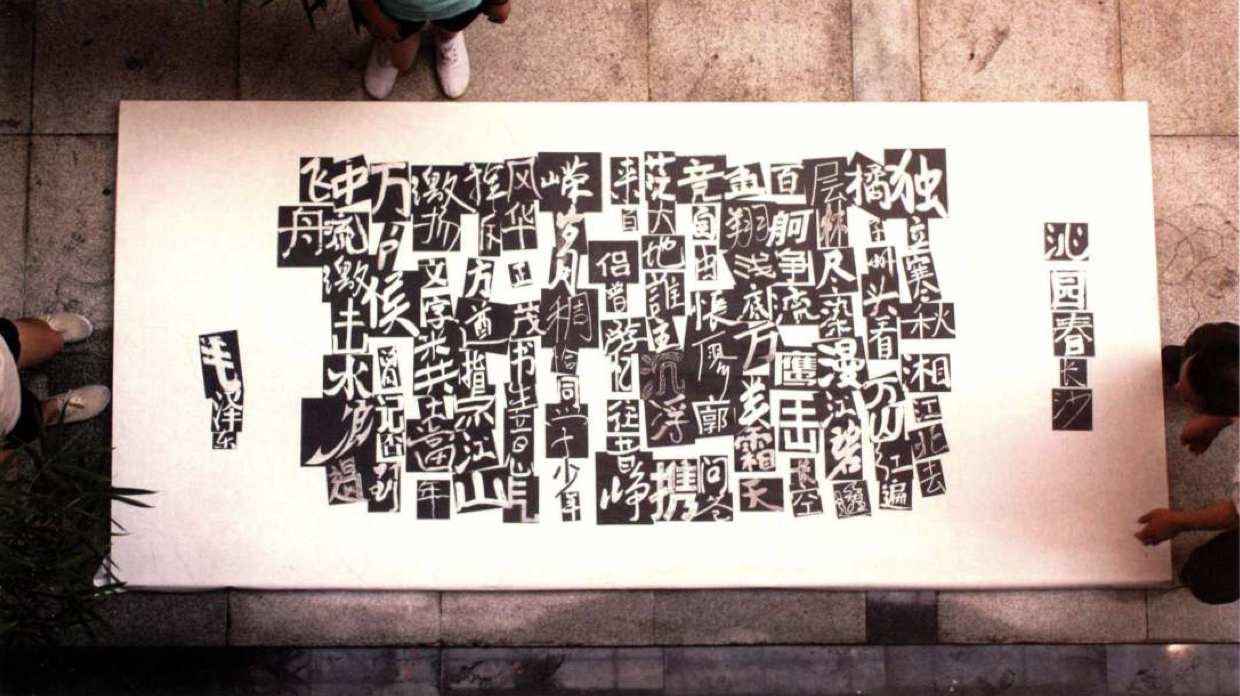 沁园春长沙
独立寒秋湘江北去
橘子洲头看万山红遍
层林尽染漫江碧透
百舸争流鹰击长空
鱼翔浅底万类霜天
竞自由怅寥廓问苍
茫大地誰主沉浮携
来百侣曾游忆往昔峥
嵘岁月稠恰同学少年
风华正茂书生意气
挥斥方遒指点江山
激扬文字粪土当年
万户侯曾记否到
中流激击水浪遏
飞舟
毛泽东